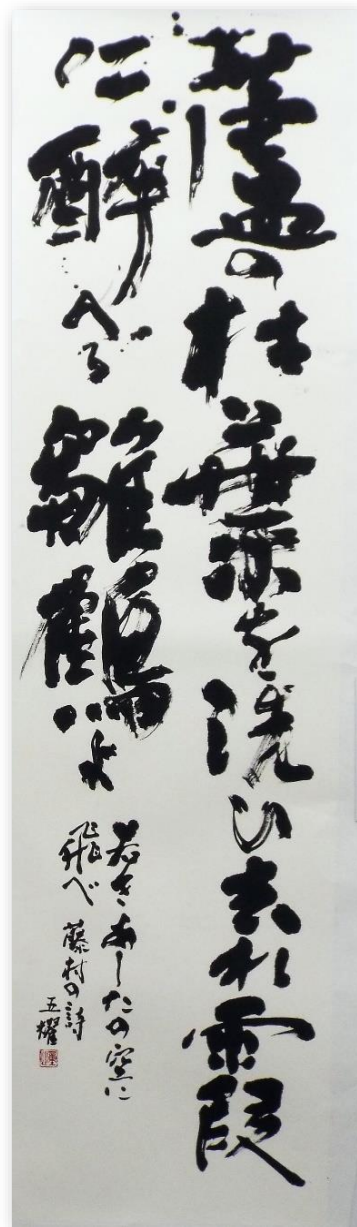 蘆の枯葉を洗ひ去れ霞
に醉へる雛鶴よ
若きあしたの空に
飛べ 藤村の詩
五耀